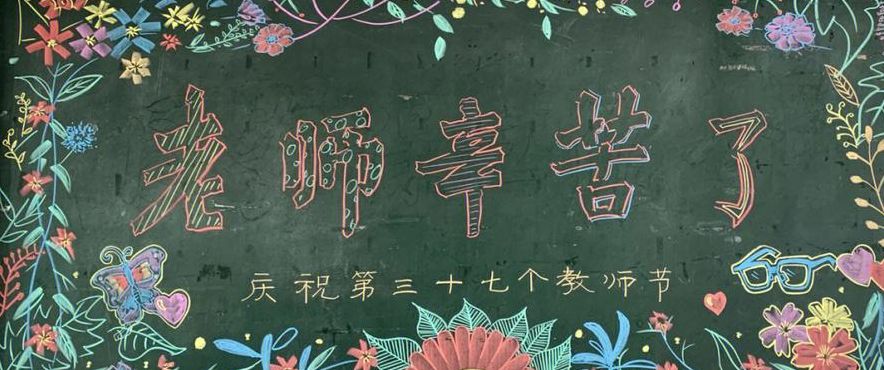 老师辛苦了
庆祝第三十七个教师节